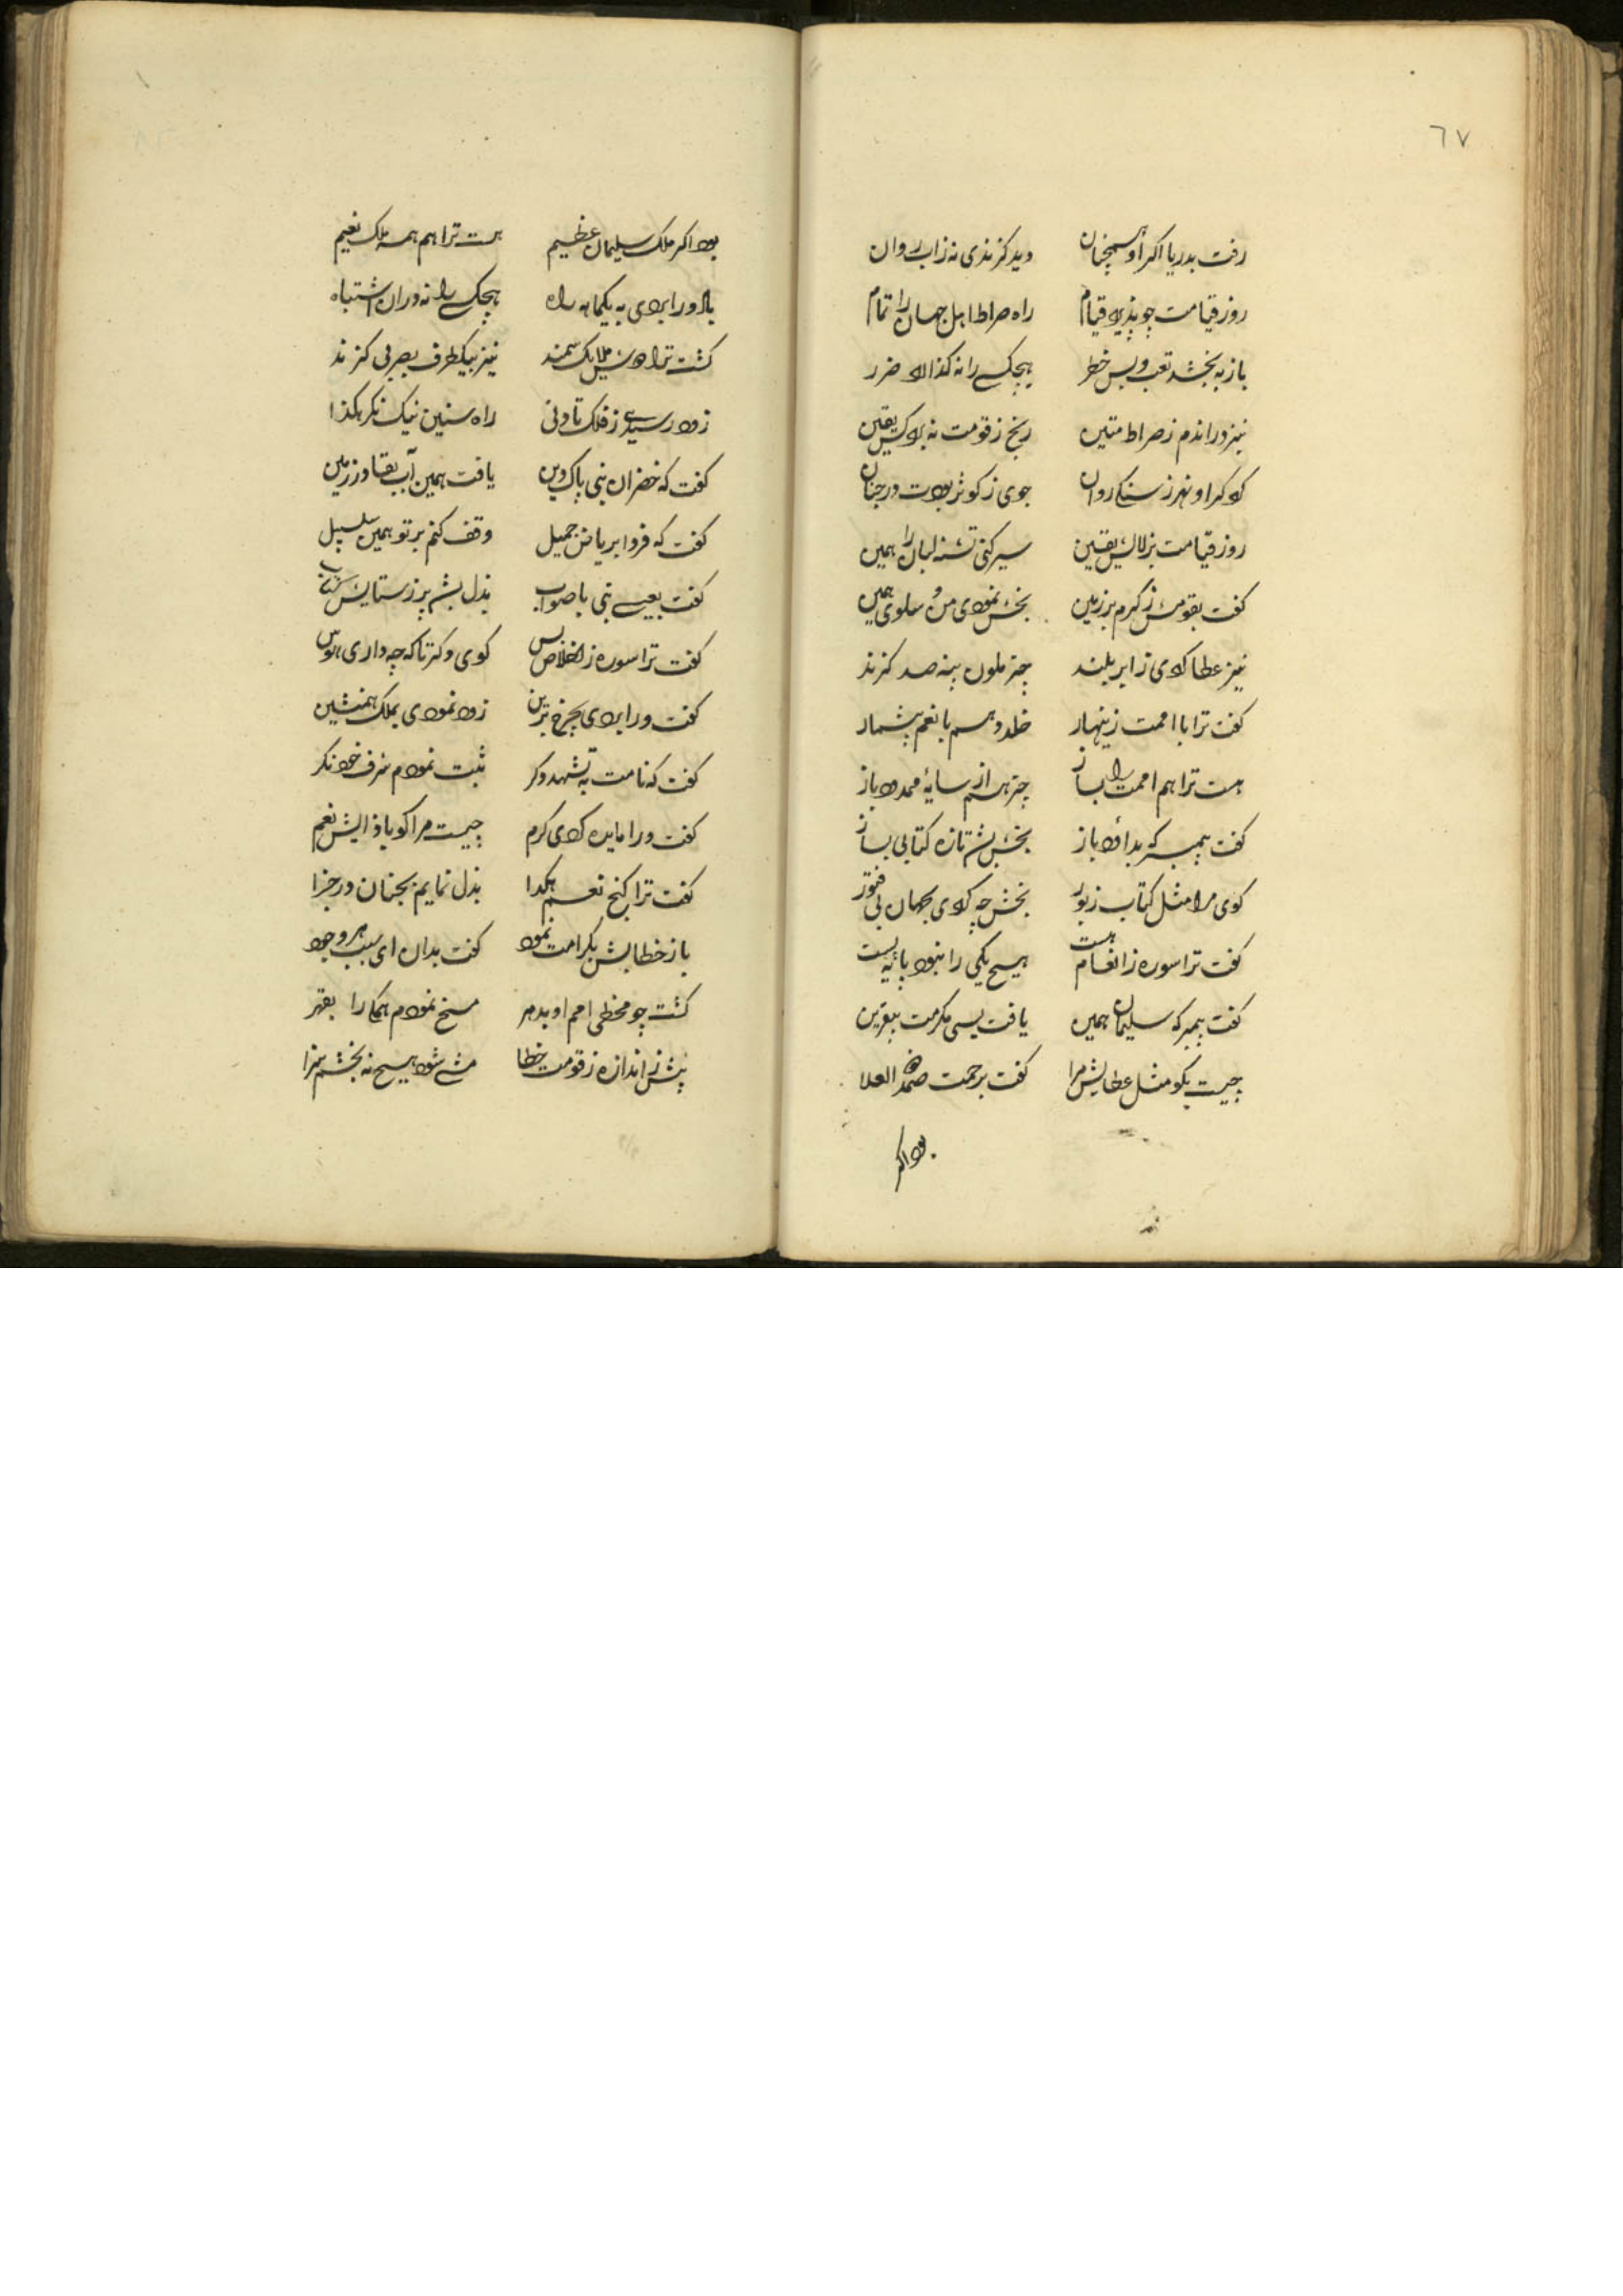 ٦٧
رفت بدریا اکر او همچنان دید کزندی نه زاب روان
روز قیامت چو پذیرد قیام راه صراط اهل جهان را تمام
باز به بخشد تعب و بس خطر هیچ کسی را نه کذارد ضرر
نیز در اندم ز صراط متین رنج ز قومت نه برد کس یقین
کرد کر او نهر ز سنک روان جوی ز کوثر بودت در جنان
روز قیامت بزلالش یقین سیر کنی تشنه لبان را همین
کفت بقومش ز کرم بر زمین بخش نمودی من و سلوی همین
نیز عطا کردی ز ابر بلند چتر ملون بینه صد کزند
کفت ترا با امت زینهار خلد و هم با نعم بیشمار
هست ترا هم امت را بساز چتر هم از سایهٔ ممدود باز
کفت پیمبر که بداؤد باز بخش بشد تازه کتابی بساز
کوی مرا مثل کتاب زبور بخش چه کردی بجهان بی فتور
کفت ترا سوره ز انعام هست هیچ یکی را نبود پایه پست
کفت پیمبر که سلیمان همین یافت بسی مکرمت بیقرین
چیست بکو مثل عطایش مرا کفت برحمت صمد ذ العلا
بود اکر
بود اکر ملک سلیمان عظیم هست ترا هم همه ملک نعیم
باد ورا بردی به یکماهه راه هیچ کسی را نه دران اشتباه
کشت ترا دوش ملایک سمند نیز بیکطرف بصر بی کزند
زود رسیدی ز فلک تا دنی راه سنین نیک نکر هکذا
کفت که خضر ان نبی پاک دین یافت همین آب بقا در زمین
کفت که فردا بریاض جمیل وقف کنم بر تو همین سلسبیل
کفت بعیسی نبی با صواب بذل بشد پر ز ستایش کتاب
کفت ترا سوره ز اخلاص بس کوی دکر تا که چه داری هوس
کفت ورا بردی بچرخ برین زود نمودی بملک همنشین
کفت که نامت به تشهد دکر ثبت نمودم شرف خود نکر
کفت ورا مایده کردی کرم چیست مرا کو باذایش نعم
کفت ترا کنج نعم هکذا بذل نمایم بجنان در جزا
باز خطابش بکرامت نمود کفت بدان ای سبب هر وجود
کشت چو مخطی امم او بدهر مسخ نمودم همکانرا بقهر
بیش ز اندازه ز قومت خطا می شود هیچ نه بخشم سزا